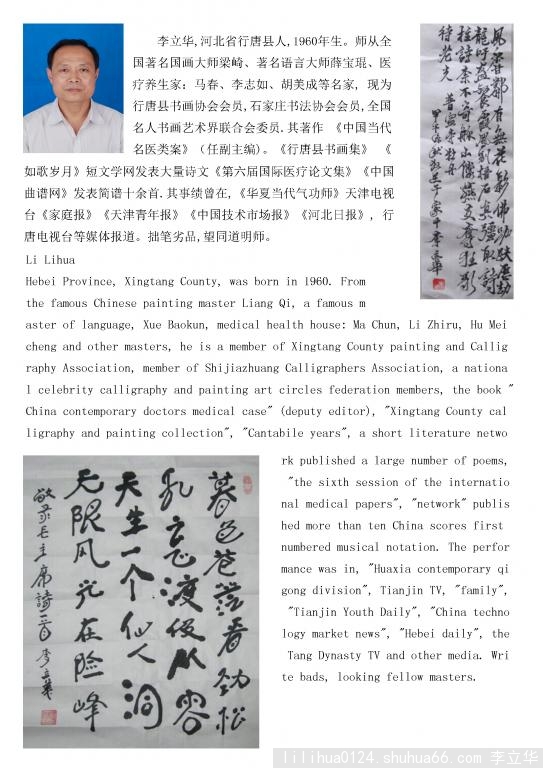 李立华,河北省行唐县人,1960年生。师从全
国著名国画大师梁崎、著名语言大师薛宝琨、医
疗养生家：马春、李志如、胡美成等名家, 现为
行唐县书画协会会员,石家庄书法协会会员,全国
名人书画艺术界联合会委员.其著作 《中国当代
名医类案》（任副主编)。《行唐县书画集》 《
如歌岁月》短文学网发表大量诗文《第六届国际医疗论文集》《中国
曲谱网》发表简谱十余首.其事绩曾在,《华夏当代气功师》天津电视
台《家庭报》《天津青年报》《中国技术市场报》《河北日报》, 行
唐电视台等媒体报道。拙笔劣品,望同道明师。
Li Lihua
Hebei Province, Xingtang County, was born in 1960. From
the famous Chinese painting master Liang Qi, a famous m
aster of language, Xue Baokun, medical health house: Ma Chun, Li Zhiru, Hu Mei
cheng and other masters, he is a member of Xingtang County painting and Callig
raphy Association, member of Shijiazhuang Calligraphers Association, a nationa
l celebrity calligraphy and painting art circles federation members, the book "
China contemporary doctors medical case" (deputy editor), "Xingtang County cal
ligraphy and painting collection", "Cantabile years", a short literature netwo
rk published a large number of poems,
"the sixth session of the internatio
nal medical papers", "network" publis
hed more than ten China scores first
numbered musical notation. The perfor
mance was in, "Huaxia contemporary qi
gong division", Tianjin TV, "family",
"Tianjin Youth Daily", "China techno
logy market news", "Hebei daily", the
Tang Dynasty TV and other media. Wri
te bads, looking fellow masters.
暮色苍茫看劲松
乱云飞渡仍从容
天生一个仙人洞
无限风光在险峰
敬录毛主席诗一首 李立华
lilihua0124.shuhua66.com 李立华